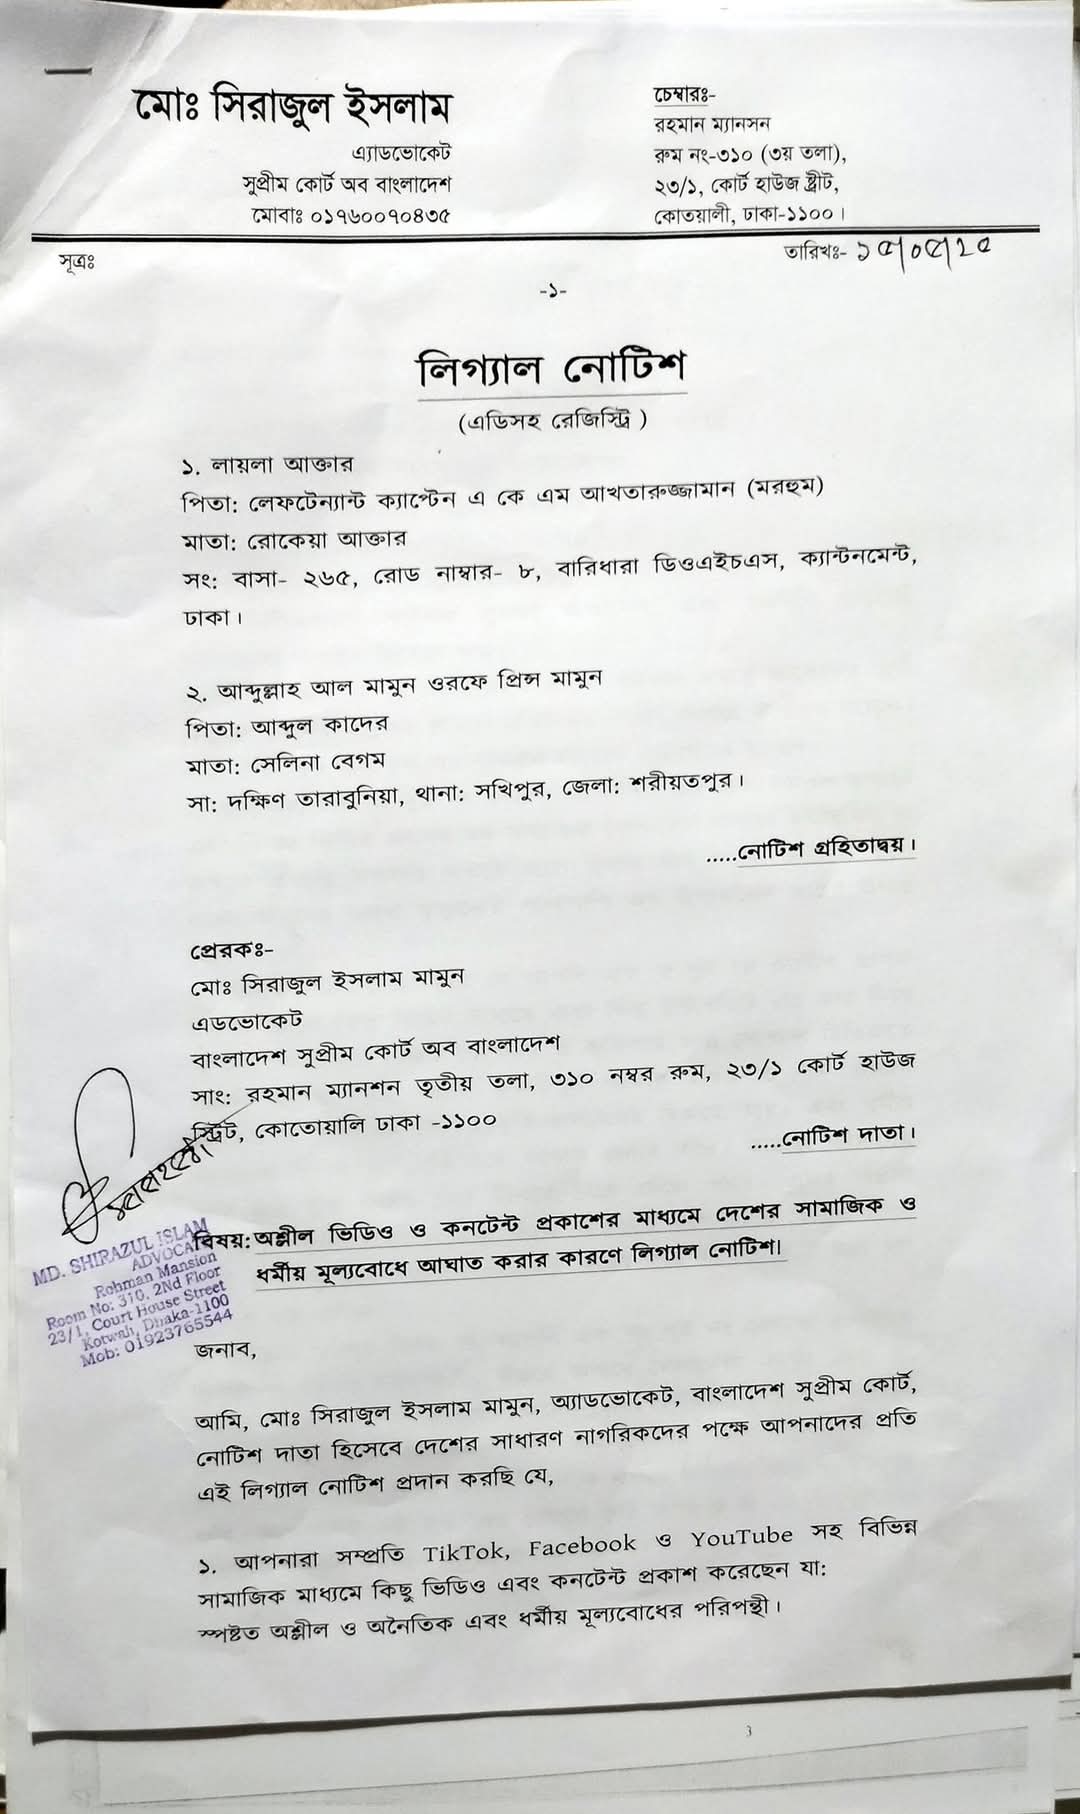 মোঃ সিরাজুল ইসলাম
এ্যাডভোকেট
সুপ্রীম কোর্ট অব বাংলাদেশ
মোবাঃ ০১৭৬০০৭০৪৩৫
চেম্বারঃ-
রহমান ম্যানসন
রুম নং-৩১০ (৩য় তলা),
২৩/১, কোর্ট হাউজ ষ্ট্রীট,
কোতয়ালী, ঢাকা-১১০০।
সূত্রঃ
তারিখঃ- ১৫/০৫/২৫
-১-
লিগ্যাল নোটিশ
(এডিসহ রেজিস্ট্রি )
১. লায়লা আক্তার
পিতা: লেফটেন্যান্ট ক্যাপ্টেন এ কে এম আখতারুজ্জামান (মরহুম)
মাতা: রোকেয়া আক্তার
সং: বাসা- ২৬৫, রোড নাম্বার- ৮, বারিধারা ডিওএইচএস, ক্যান্টনমেন্ট,
ঢাকা।
২. আব্দুল্লাহ আল মামুন ওরফে প্রিন্স মামুন
পিতা: আব্দুল কাদের
মাতা: সেলিনা বেগম
সা: দক্ষিণ তারাবুনিয়া, থানা: সখিপুর, জেলা: শরীয়তপুর।
.....নোটিশ গ্রহিতাদ্বয়।
প্রেরকঃ-
মোঃ সিরাজুল ইসলাম মামুন
এডভোকেট
বাংলাদেশ সুপ্রীম কোর্ট অব বাংলাদেশ
সাং: রহমান ম্যানশন তৃতীয় তলা, ৩১০ নম্বর রুম, ২৩/১ কোর্ট হাউজ
স্ট্রিট, কোতোয়ালি ঢাকা -১১০০
.....নোটিশ দাতা।
MD. SHIRAZUL ISLAM
ADVOCATE
Rohman Mansion
Room No: 310, 2Nd Floor
23/1, Court House Street
Kotwali, Dhaka-1100
Mob: 01923765544
বিষয়: অশ্লীল ভিডিও ও কনটেন্ট প্রকাশের মাধ্যমে দেশের সামাজিক ও
ধর্মীয় মূল্যবোধে আঘাত করার কারণে লিগ্যাল নোটিশ।
জনাব,
আমি, মোঃ সিরাজুল ইসলাম মামুন, অ্যাডভোকেট, বাংলাদেশ সুপ্রীম কোর্ট,
নোটিশ দাতা হিসেবে দেশের সাধারণ নাগরিকদের পক্ষে আপনাদের প্রতি
এই লিগ্যাল নোটিশ প্রদান করছি যে,
১. আপনারা সম্প্রতি TikTok, Facebook ও YouTube সহ বিভিন্ন
সামাজিক মাধ্যমে কিছু ভিডিও এবং কনটেন্ট প্রকাশ করেছেন যা:
স্পষ্টত অশ্লীল ও অনৈতিক এবং ধর্মীয় মূল্যবোধের পরিপন্থী।
3